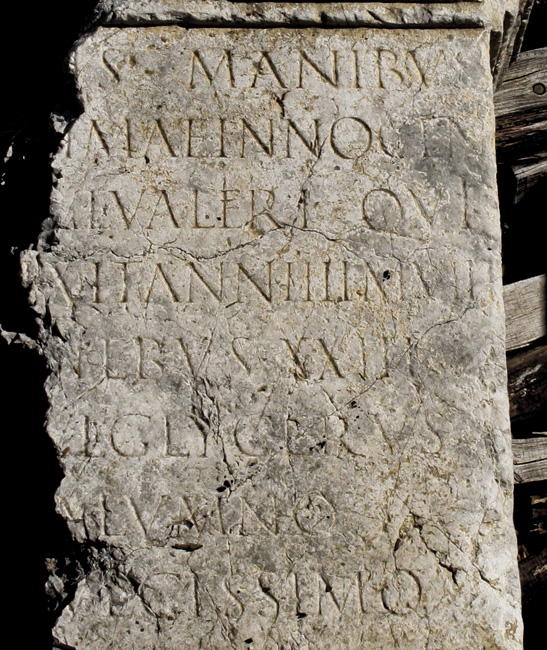 S MANIBV
IMAE INNOCEN
VALERI QVI
VIT ANN IIII M VII
EBVS XXIII
GLYCERVS
LVMNO
CISSIMO